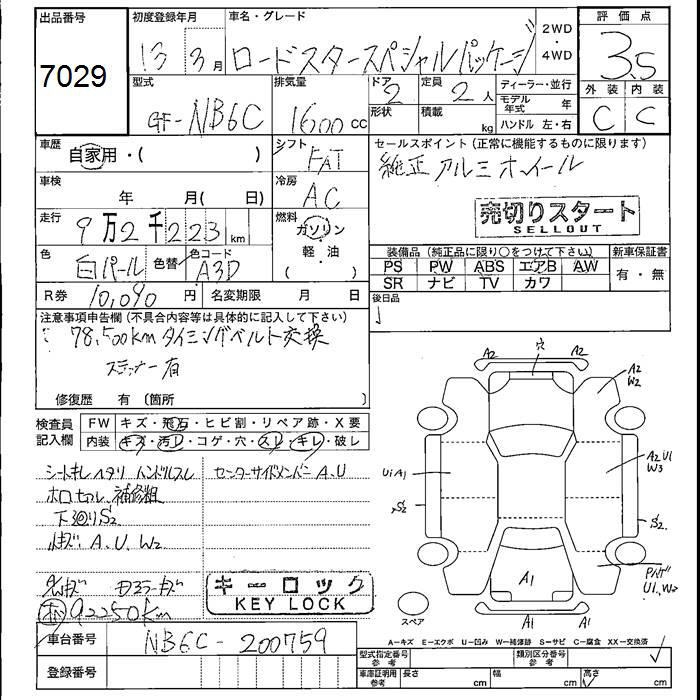 出品番号
7029
初度登録年月
13 3月
車名・グレード
ロードスタースペシャルパッケージ
2WD
・
4WD
評価点
3.5
外装 内装
C C
型式
GF-NB6C
排気量
1600cc
ドア
2
形状
定員
2人
積載
kg
ディーラー・並行
モデル年式 年
ハンドル 左・右
車歴
自家用・( )
シフト
FAT
セールスポイント(正常に機能するものに限ります)
純正アルミホイール
車検
年 月( 日)
冷房
AC
売切りスタート
SELLOUT
走行
9万2千223km
燃料
ガソリン
軽・油
( )
色
白パール
色替
色コード
A3D
装備品(純正品に限り○をつけて下さい)
PS PW ABS エアB AW
SR ナビ TV カワ
新車保証書
有・無
R券 10,090円
名変期限 月 日
後日品
注意事項申告欄(不具合内容等は具体的に記入して下さい)
78,500km タイミングベルト交換
ステッカー有
修復歴 有 〔箇所 〕
検査員記入欄
FW キズ・飛石・ヒビ割・リペア跡・X要
内装 キズ・汚レ・コゲ・穴・スレ・キレ・破レ
シートキレ ヘタリ ハンドルスレ
センターサイドメンバー A.U
補修粗
下廻りS2
小キズ A.U.W2
キーロック
KEY LOCK
92250km
穴
A2 A2
A2
W2
U1 A1
A2 U1
W3
S2
S2
A1
U1.W2
A1 A1
スペア
A−キズ E−エクボ U−凹み W−補修跡 S−サビ C−腐食 XX−交換済
車台番号 NB6C-200759
登録番号
型式指定番号
参考
類別区分番号
参考
車庫証明用
参考
長さ cm 幅 cm 高さ cm